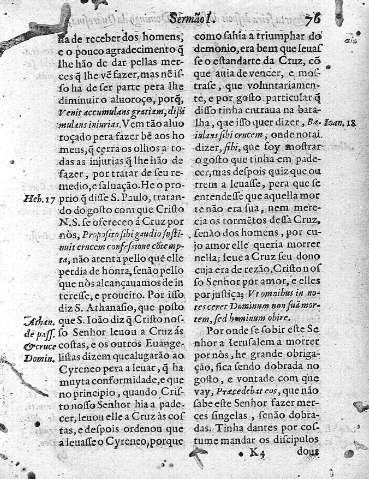 Sermão I. 76
ha de receber dos homens,
e o pouco agradecimento q̃
lhe hão de dar pellas mer-
ces q̃ lhe vẽ fazer, mas nẽ is-
so ha de ser parte pera lhe
diminuir o aluoroço, porq̃,
Venit accumulans gratiam, dißi-
mulans iniurias. Vem tão aluo
roçado pera fazer bẽ aos ho-
mens, q̃ cerra os olhos a to-
das as injurias q̃ lhe hão de
fazer, por tratar de seu re-
medio, e saluação. He o pro-
Heb. 17
prio q̃ disse S. Paulo, tratan-
do do gosto com que Cristo
N.S. se ofereceo á Cruz por
nòs, Proposito sibi gaudio susti-
nuit crucem confusione contemp-
ta, não atenta pello quẽ elle
perdia de honra, senão pello
que nòs alcançauamos de in-
teresse, e proueito. Por isso
diz S. Athanasio, que posto
Athan.
que S. Ioão diz q̃ Cristo nos-
de pass.
so Senhor leuou a Cruz às
& cruce
costas, e os outros Euange-
Domin.
listas dizem que alugarão ao
Cyreneo pera a leuar, q̃ ha
muyta conformidade, e que
no principio, quando Cris-
to nosso Senhor hia a pade-
cer, leuou elle a Cruz às cos-
tas, e despois ordenou que
a leuasse o Cyreneo, porque
como sahia a triumphar do
demonio, era bem que leuas-
se o estandarte da Cruz, cõ
que auia de vencer, e mos-
trase, que voluntariamen-
te, e por gosto particular q̃
disso tinha entraua na bata-
lha, que isso quer dizer, Ba-
Ioan. 18
iulans sibi crucem, onde notai
dizer, sibi, que foy mostrar
o gosto que tinha em pade-
cer, mas despois quiz que ou
trem a leuasse, pera que se
entendesse que aquella mor
te não era sua, nem mere-
cia os tormẽtos dessa Cruz,
senão dos homens, por cu-
jo amor elle queria morrer
nella; leue a Cruz seu dono
cuja era de rezão, Cristo nos
so Senhor por amor, e elles
por justiça; Vt omnibus in no-
tesceret Dominum non suã mor-
tem, sed hominum obire.
Por onde se sobir este Se
nhor a Ierusalem a morrer
por nòs, he grande obriga-
ção, fica sendo dobrada no
gosto, e vontade com que
vay, Præcedebat eos, que não
sabe este Senhor fazer mer-
ces singelas, senão dobra-
das. Tinha dantes por cos-
tume mandar os discipulos
K4 dous